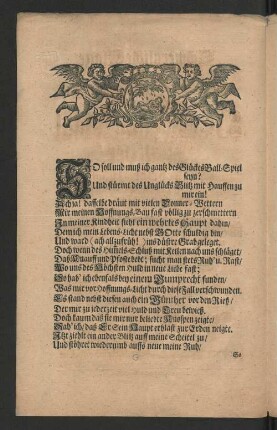 SO soll und muß ich gantz des Glückes Ball-Spiel
seyn?
Und stürmt des Unglücks Blitz mit Hauffen zu
mir ein!
Ach ja! dasselbe dräut mit vielen Donner-Wettern
Mir meinen Hoffnungs-Bau fast völlig zu zerschmettern
In meiner Kindheit fiehl ein wehrtes Haupt dahin,
Dem ich mein Lebens-Licht nebst GOtte schuldig bin,
Und ward (ach all zufrüh!) ins düstre Grab geleget.
Doch wenn des Himmels Schluß mit Keilen nach uns schläget,
Daß Knauff und Pfoste bebt; findt man stets Ruh' u. Rast,
Wo uns des Höchsten Huld in neue Liebe fast;
So hab' ich ebenfals den einem Rumprecht funden,
Was mir vor Hoffnungs-Licht durch diese Fall verschwunden.
Es stand nebst diesen auch ein Günther vor den Rieß,
Der mir zu jederzeit viel Huld und Treu bewieß.
Doch kaum daß sie mir nur beliebte Knospen zeigte,
Sah' ich, daß Er Sein Haupt erblast zur Erden neigte.
Itzt zieht ein ander Blitz auff meine Scheitel zu,
Und stöhret wiederumb auffs neue meine Ruh,